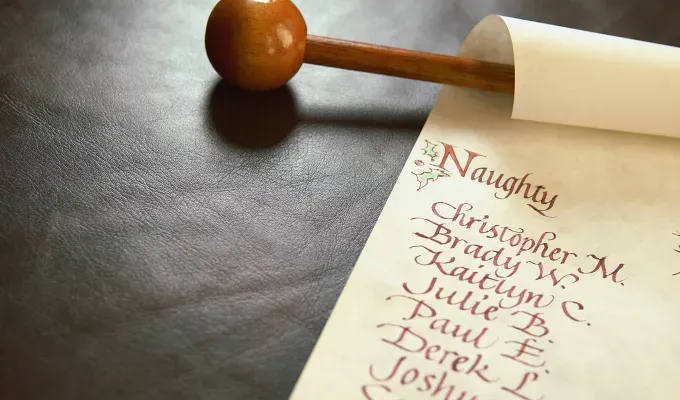 Naughty
Christopher M.
Brady W.
Kaitlyn C.
Julie B.
Paul E.
Derek L
Joshu